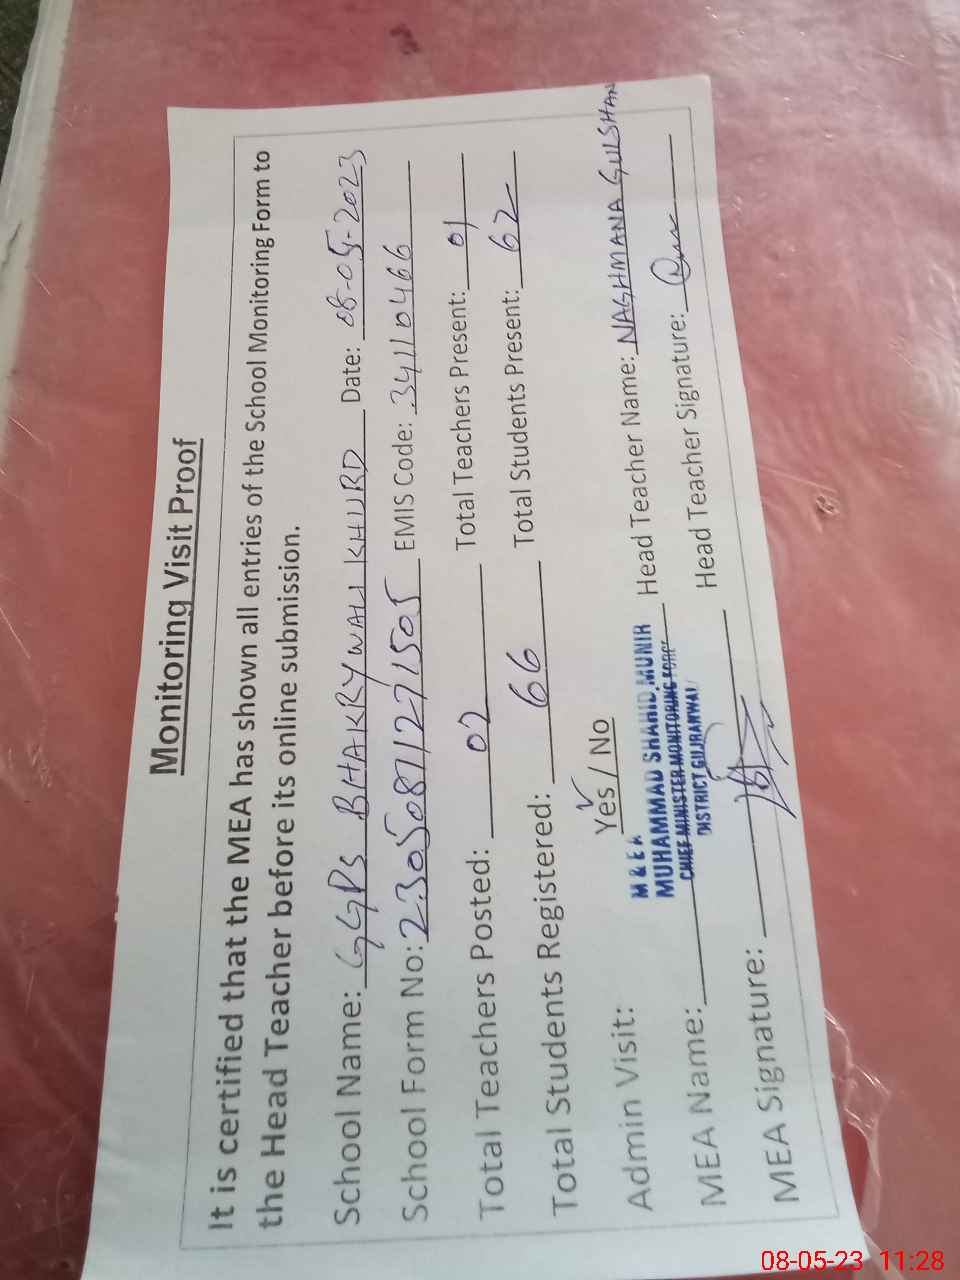 Monitoring Visit Proof
It is certified that the MEA has shown all entries of the School Monitoring Form to
the Head Teacher before its online submission.
School Name: GGPS BHAKRYWALI KHURD Date: 08-05-2023
School Form No: 2305081271505 EMIS Code: 34110466
Total Teachers Posted: 02 Total Teachers Present: 01
Total Students Registered: 66 Total Students Present: 62
Admin Visit: Yes / No
M & E A
MUHAMMAD SHAHID MUNIR
CHIEF MINISTER MONITORING FORCE
DISTRICT GUJRANWALA
MEA Name: Head Teacher Name: NAGHMANA GULSHAN
MEA Signature: Head Teacher Signature:
08-05-23 11:28